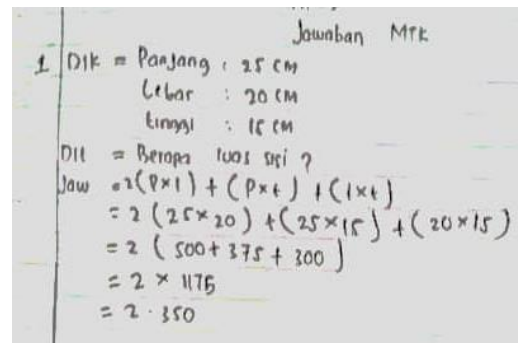 Jawaban MTK
1 Dik = Panjang : 25 cm
Lebar : 20 cm
tinggi : 15 cm
Dit = Berapa luas sisi ?
Jaw = 2(P×l) + (P×t) + (l×t)
= 2 (25×20) + (25×15) + (20×15)
= 2 ( 500 + 375 + 300 )
= 2 × 1175
= 2.350